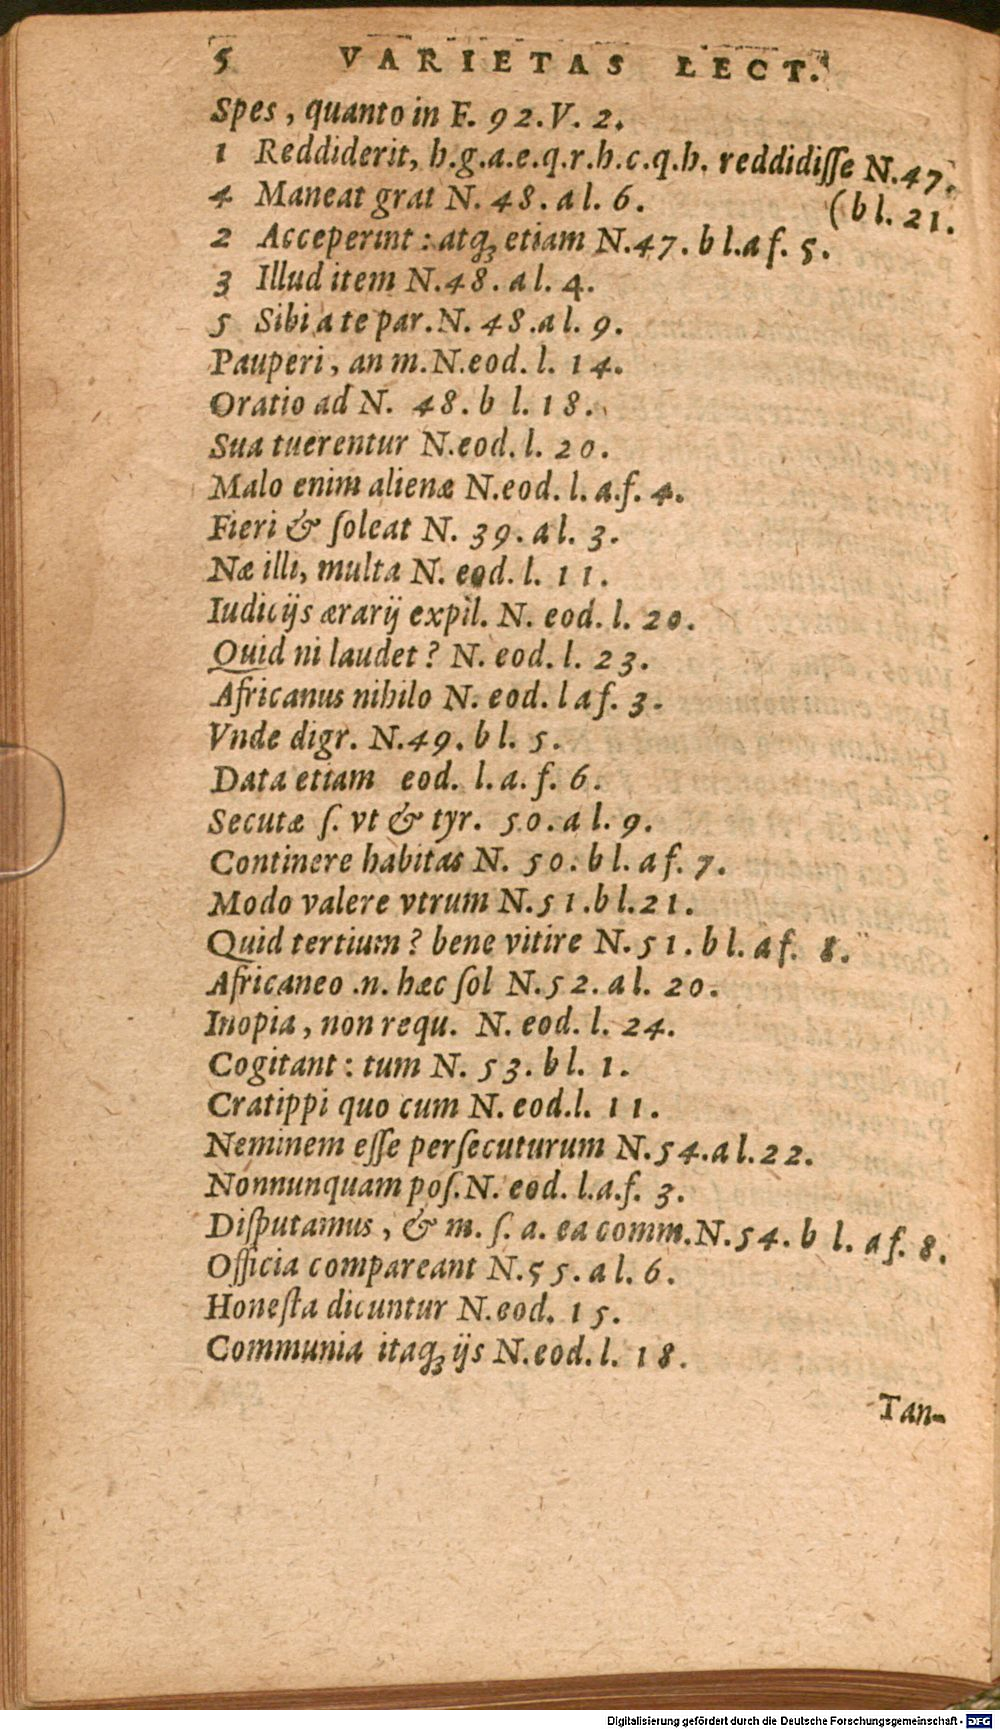 5 VARIETAS LECT.
Spes, quanto in F. 92. V. 2.
1 Reddiderit, h.g.a.e.q.r.h.c.q.h. reddidiſſe N.47.
4 Maneat grat N. 48. a l. 6. (b l. 21.
2 Acceperint : atqꝫ etiam N.47. b l. a f. 5.
3 Illud item N.48. a l. 4.
5 Sibi a te par. N. 48. a l. 9.
Pauperi, an m. N. eod. l. 14.
Oratio ad N. 48. b l. 18.
Sua tuerentur N. eod. l. 20.
Malo enim alienæ N. eod. l. a. f. 4.
Fieri & ſoleat N. 39. a l. 3.
Næ illi, multa N. eod. l. 11.
Iudicijs ærarij expil. N. eod. l. 20.
Quid ni laudet? N. eod. l. 23.
Africanus nihilo N. eod. l a f. 3.
Vnde digr. N.49. b l. 5.
Data etiam eod. l. a. f. 6.
Secutæ ſ. vt & tyr. 50. a l. 9.
Continere habitas N. 50. b l. a f. 7.
Modo valere vtrum N.51. b l. 21.
Quid tertium? bene vitire N. 51. b l. a f. 8.
Africaneo .n. hæc ſol N.52. a l. 20.
Inopia, non requ. N. eod. l. 24.
Cogitant : tum N. 53. b l. 1.
Cratippi quo cum N. eod. l. 11.
Neminem eſſe perſecuturum N.54. a l. 22.
Nonnunquam poſ. N. eod. l. a. f. 3.
Diſputamus, & m. ſ. a. ea comm. N.54. b l. a f. 8.
Officia compareant N.55. a l. 6.
Honeſta dicuntur N. eod. 15.
Communia itaqꝫ ijs N. eod. l. 18.
Tan-
Digitalisierung gefördert durch die Deutsche Forschungsgemeinschaft - DFG